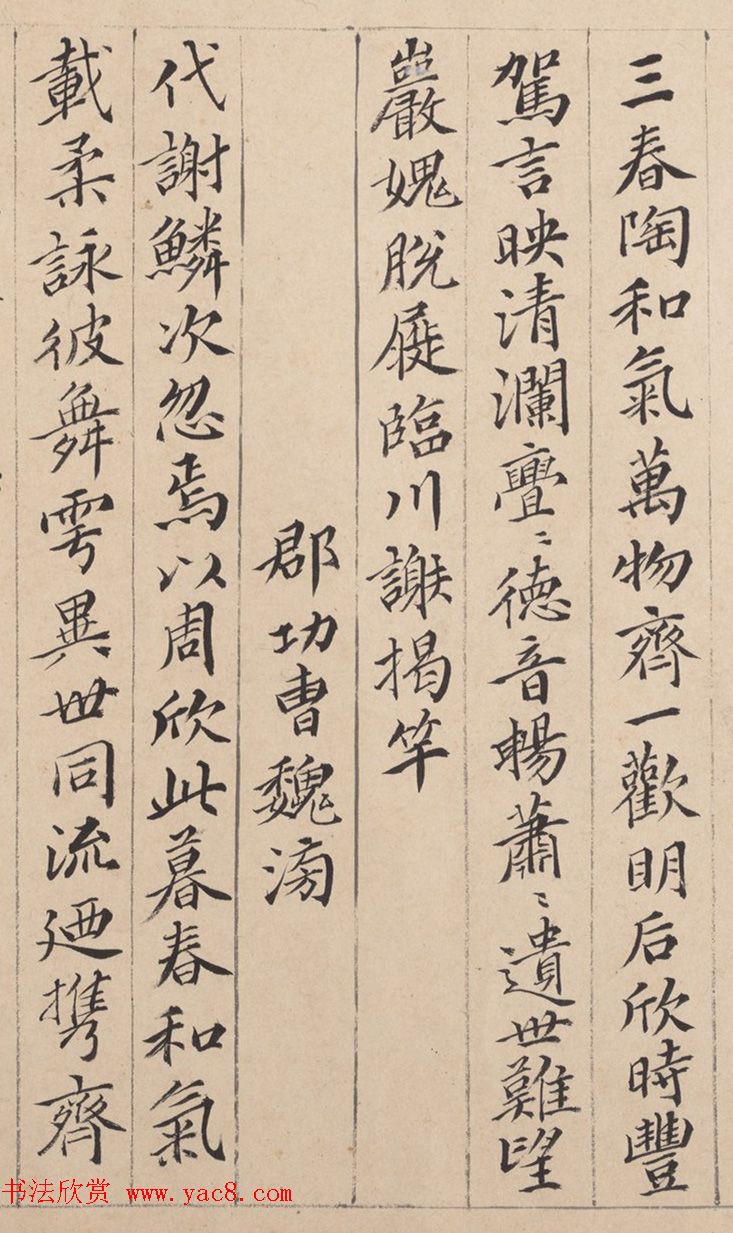 三春陶和氣萬物齊一歡明后欣時豐
駕言映清瀾亹〻德音暢蕭〻遺世難望
巖媿脫屣臨川謝揭竿
郡功曹魏滂
代謝鱗次忽焉以周欣此暮春和氣
載柔詠彼舞雩異世同流迺携齊
书法欣赏 www.yac8.com